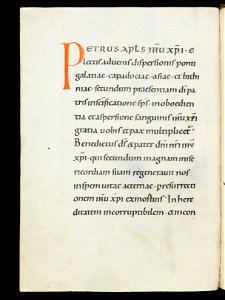 PETRUS APLS IHU XPI · E
lectis advenis dispersionis ponti
galatiae · capadociae · asiae · et bithi
niae · secundum praesentiam di pa
tris in scificatione sps · in oboedien
tia et aspersione sanguinis ihu xpi
gratia vobis et pax multiplicet ·
Benedictus ds et pater dni nri ihu
xpi · qui secundum magnam mise
ricordiam suam regeneravit nos
in spem vitae aeternae · per surrecti
onem ihu xpi ex mortuis · In here
ditatem incorruptibilem · et incon